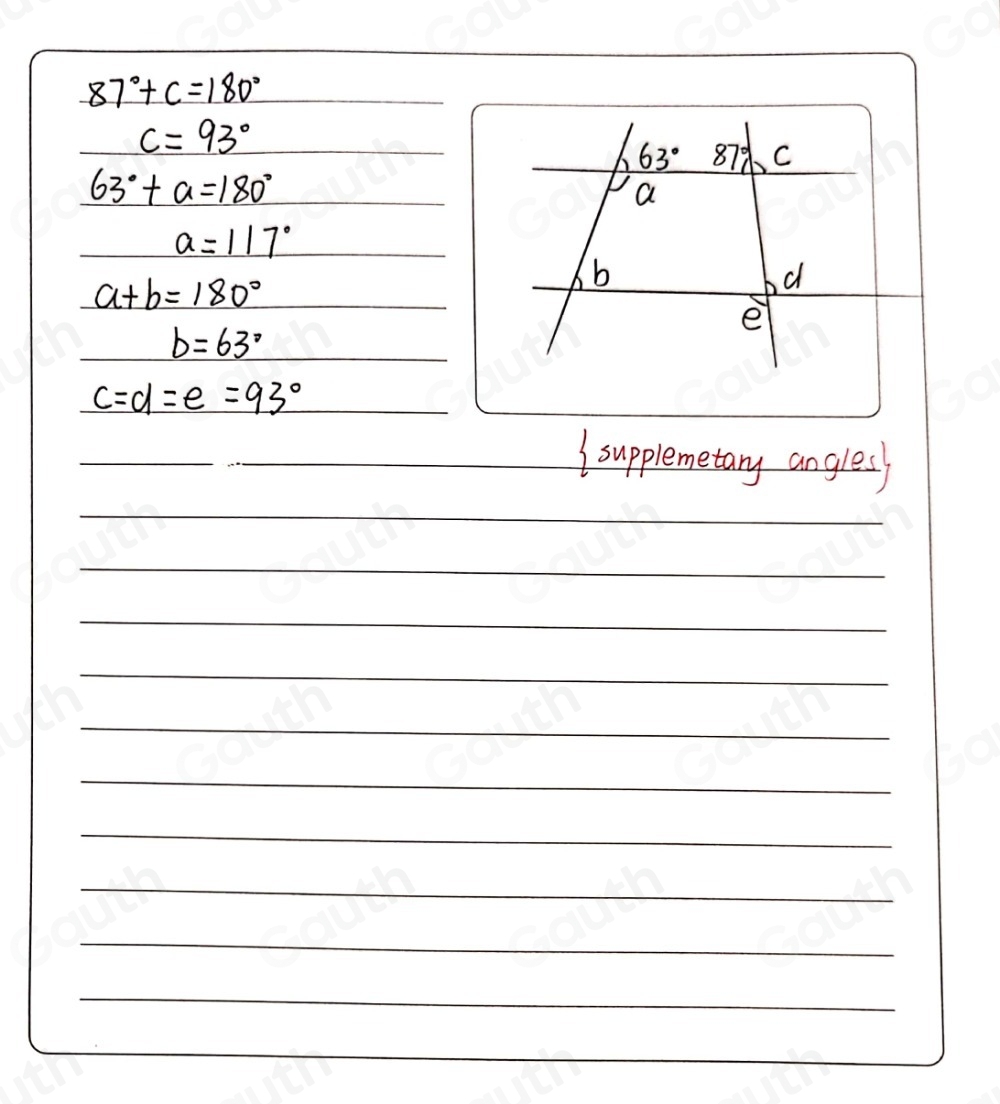 87°+c=180°
c=93°
63°+a=180°
a=117°
a+b=180°
b=63°
c=d=e=93°
63° 87° c
a
b d
e
{supplemetary angles}
Gauth